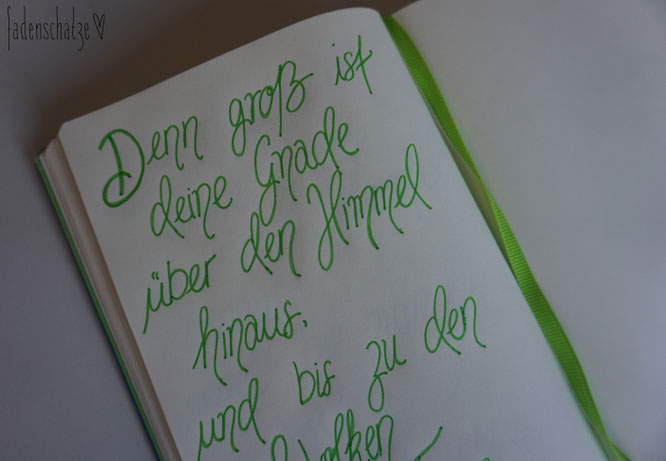 fadenschätze
Denn groß ist
deine Gnade
über den Himmel
hinaus.
und bis zu den
Wolken